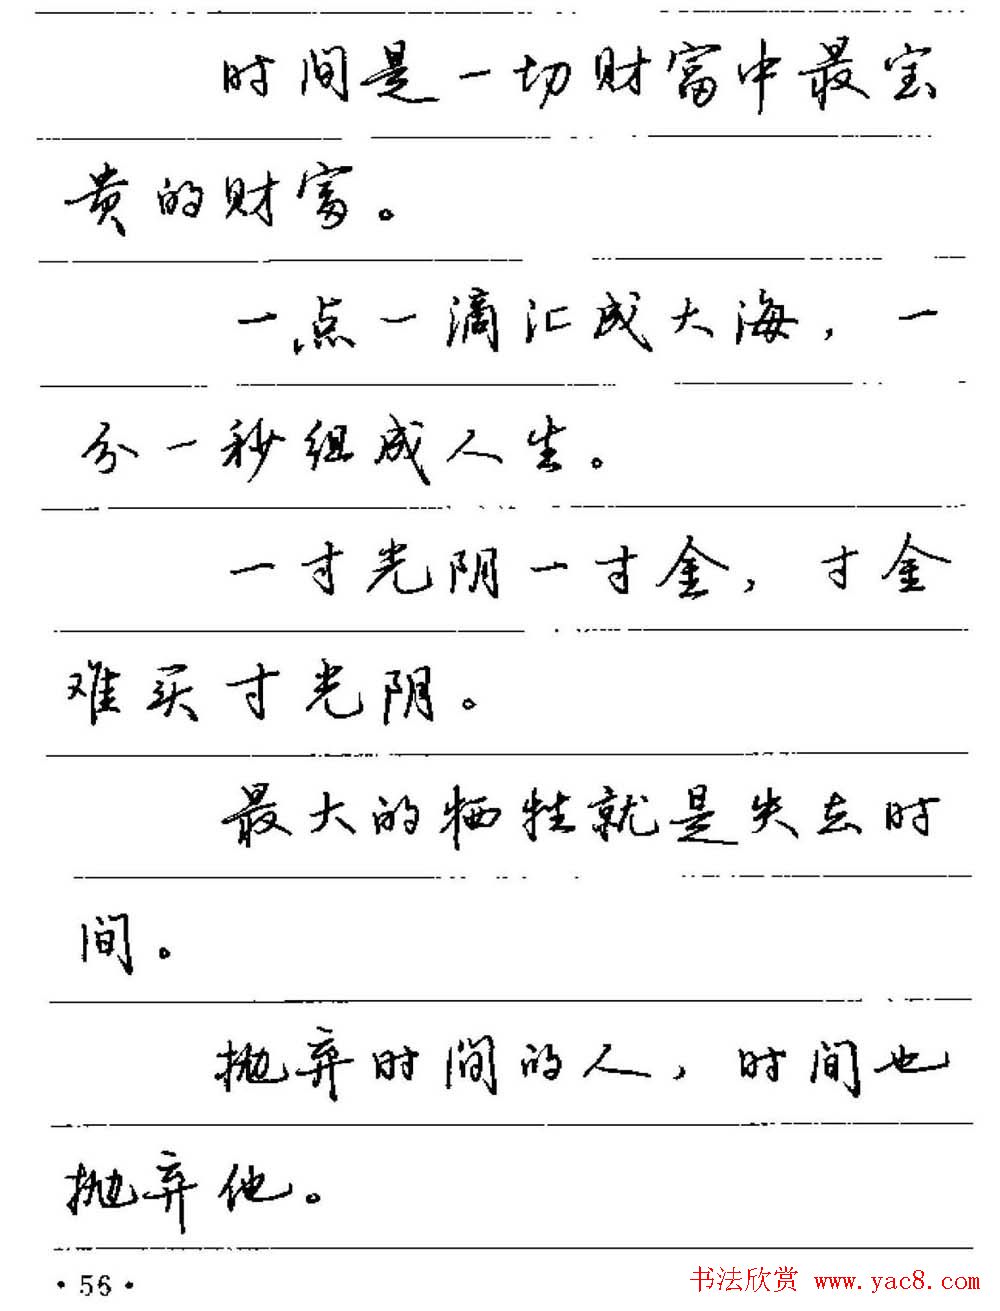 时间是一切财富中最宝
贵的财富。
一点一滴汇成大海，一
分一秒组成人生。
一寸光阴一寸金，寸金
难买寸光阴。
最大的牺牲就是失去时
间。
抛弃时间的人，时间也
抛弃他。
·56·
书法欣赏 www.yac8.com